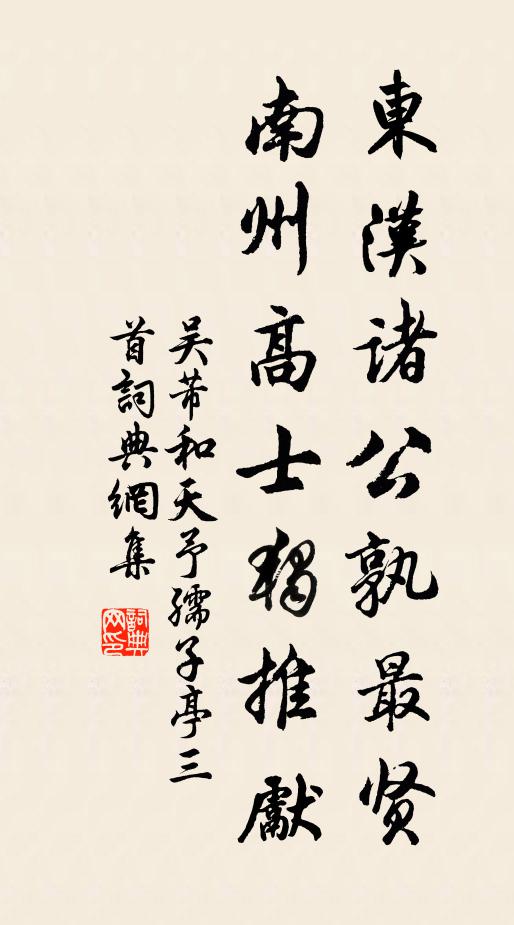 東漢諸公孰最贤
南州髙士獨推獻
吴芾和天予孺子亭三
首詞典網集
詞典
网印